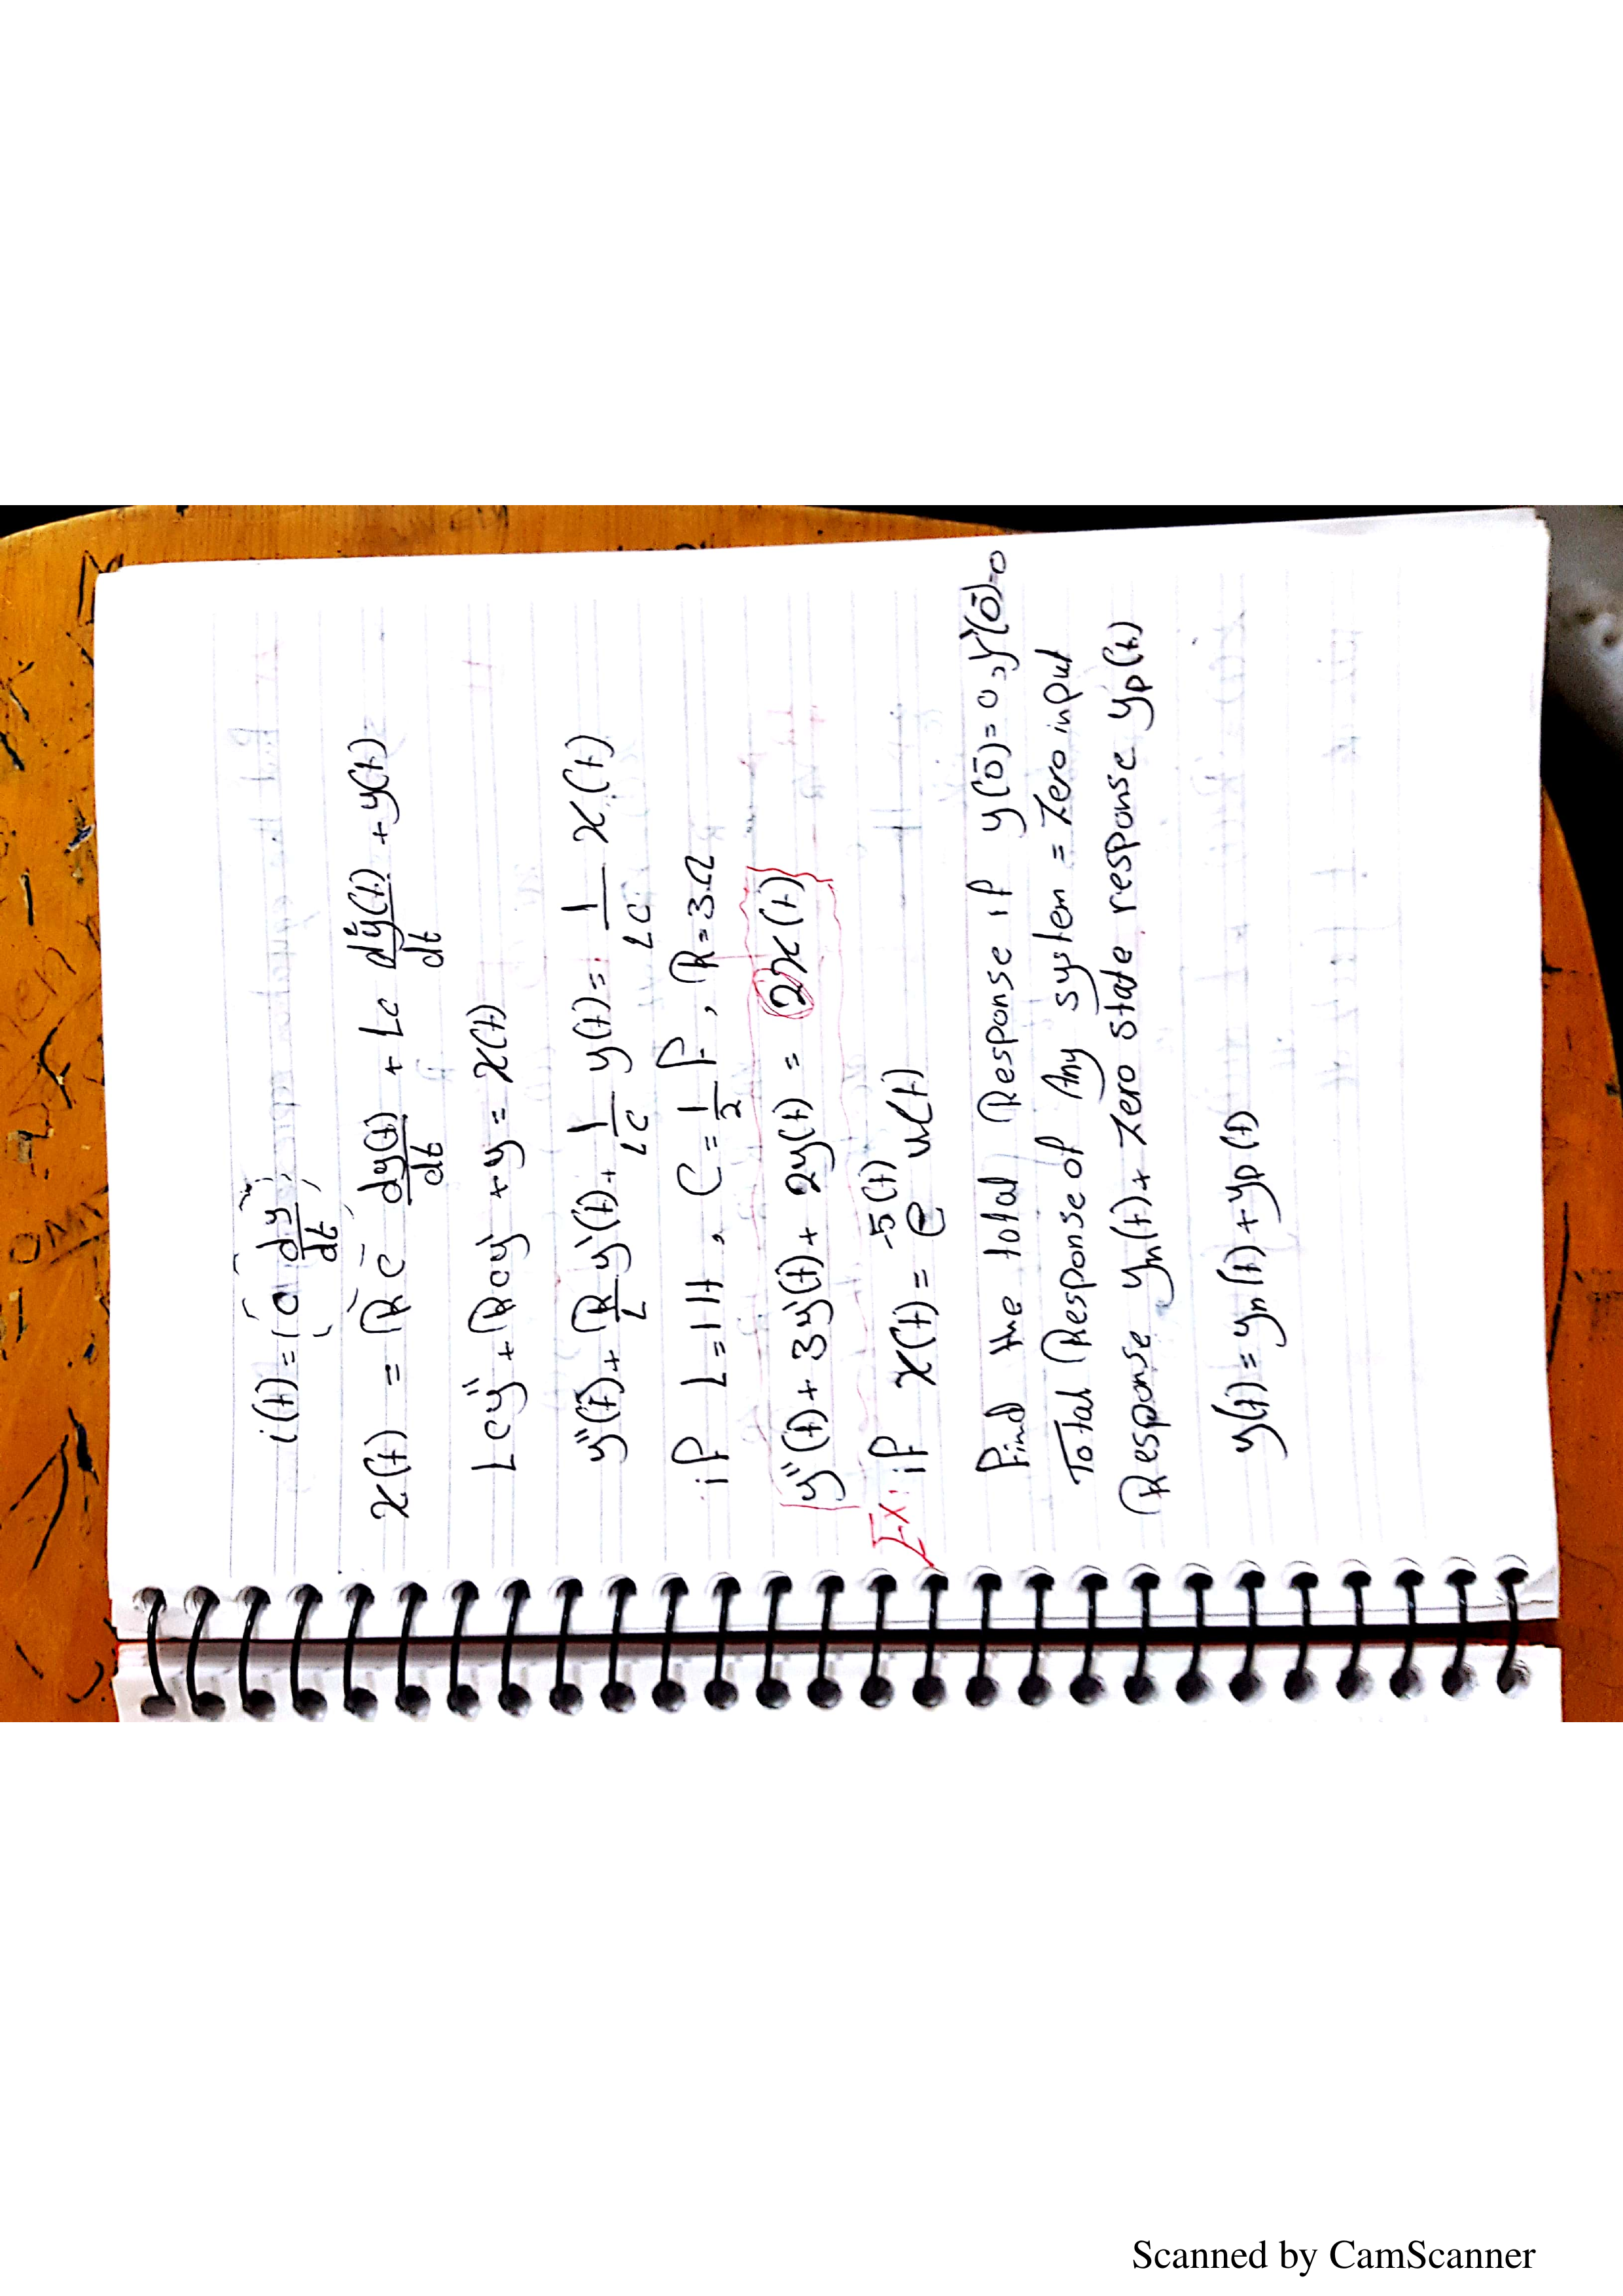 i(t) = C dy/dt
x(t) = RC dy(t)/dt + LC d²y(t)/dt + y(t)
LCy'' + RCy' + y = x(t)
y''(t) + R/L y'(t) + 1/LC y(t) = 1/LC x(t)
if L = 1H , C = 1/2 F , R = 3Ω
y''(t) + 3y'(t) + 2y(t) = 2x(t)
Ex: if x(t) = e^-5(t) u(t)
Find the total Response if y(0⁻) = 0 , y'(0⁻) = 0
Total Response of Any system = Zero input
Response yn(t) + Zero state response yp(t)
y(t) = yn(t) + yp(t)
Scanned by CamScanner